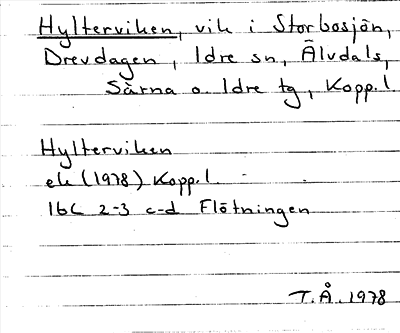 Hylterviken, vik i Storbosjön,
Drevdagen, Idre sn, Älvdals,
Särna o. Idre tg, Kopp. l.
Hylterviken
ek (1978) Kopp. l.
16C 2-3 c-d Flötningen
T.Å. 1978